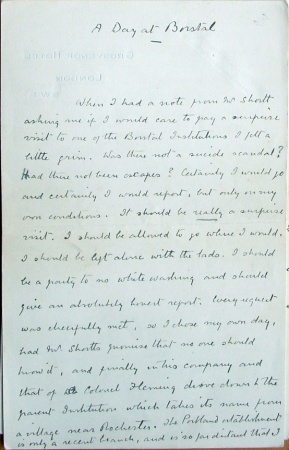 A Day at Borstal
GROSVENOR HOTEL
LONDON
S.W.1
When I had a note from Mr Shortt
asking me if I would care to pay a surprise
visit to one of the Borstal Institutions I felt a
little grim. Was there not a suicide scandal?
Had there not been escapes? Certainly I would go
and certainly I would report, but only on my
own conditions. It should be really a surprise
visit. I should be allowed to go where I would.
I should be left alone with the lads. I should
be a party to no white washing and should
give an absolutely honest report. Every request
was cheerfully met, so I chose my own day,
had Mr Shortts promise that no one should
know it, and finally in his company and
that of Colonel Fleming drove down to the
parent Institution which takes its name from
a village near Rochester. The Portland establishment
is only a recent branch, and is so far distant that I